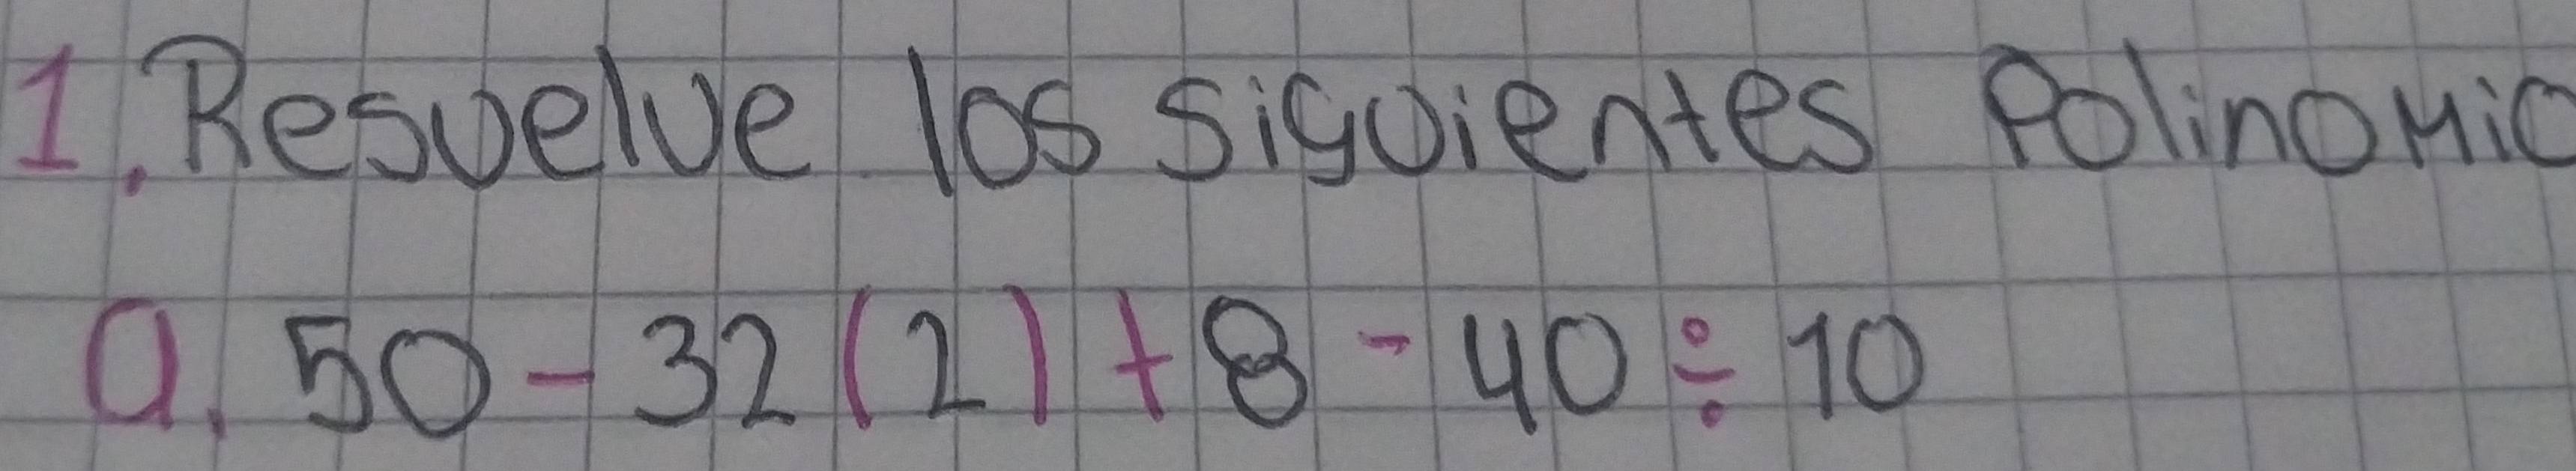 1. Resuelve los siguientes Polinomio
a. 50 - 32 (2) + 8 - 40 ÷ 10